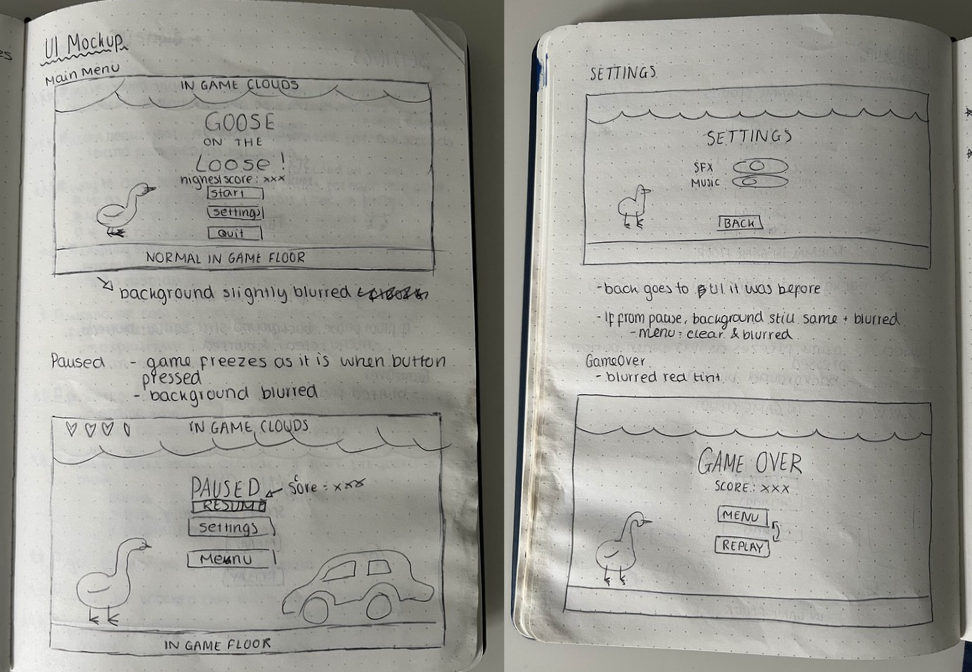 UI Mockup
Main Menu
IN GAME CLOUDS
GOOSE
ON THE
LOOSE!
highest score: xxx
start
settings
Quit
NORMAL IN GAME FLOOR
background slightly blurred
Paused - game freezes as it is when button
pressed
- background blurred
IN GAME CLOUDS
PAUSED
score: xxx
RESUME
settings
Menu
IN GAME FLOOR
SETTINGS
SETTINGS
SFX
MUSIC
BACK
- back goes to UI it was before
- If from pause, background still same + blurred
- menu: clear & blurred
GameOver
- blurred red tint
GAME OVER
SCORE: XXX
MENU
REPLAY